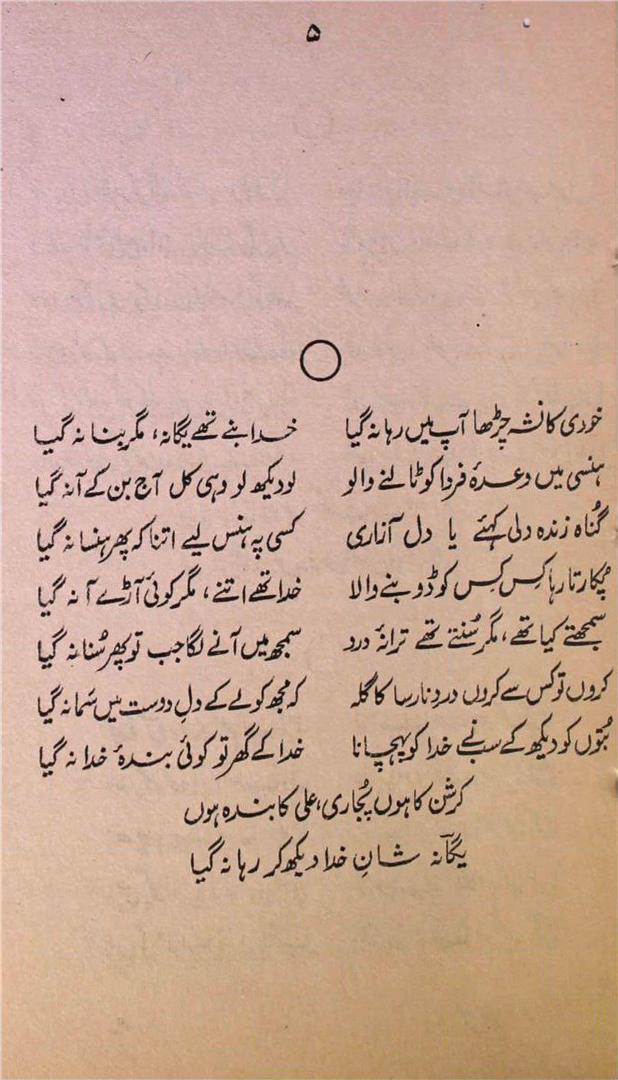 ۵
خودی کا نشہ چڑھا آپ میں رہا نہ گیا خدا بنے تھے یگانہ، مگر بنا نہ گیا
ہنسی میں وعدۂ فردا کو ٹالنے والو لو دیکھ لو وہی کل آج بن کے آ نہ گیا
گُناہِ زندہ دلی کہئے یا دل آزاری کسی پہ ہنس لیے اتنا کہ پھر ہنسا نہ گیا
پُکارتا رہا کِس کِس کو ڈوبنے والا خدا تھے اتنے، مگر کوئی آڑے آ نہ گیا
سمجھتے کیا تھے، مگر سُنتے تھے ترانۂ درد سمجھ میں آنے لگا جب تو پھر سُنا نہ گیا
کروں تو کس سے کروں دردِ نارسا کا گلہ کہ مجھ کو لے کے دلِ دوست میں سَما نہ گیا
بُتوں کو دیکھ کے سب نے خدا کو پہچانا خدا کے گھر تو کوئی بندۂ خدا نہ گیا
کرشن کا ہوں پُجاری، علی کا بندہ ہوں
یگانہؔ شانِ خدا دیکھ کر رہا نہ گیا